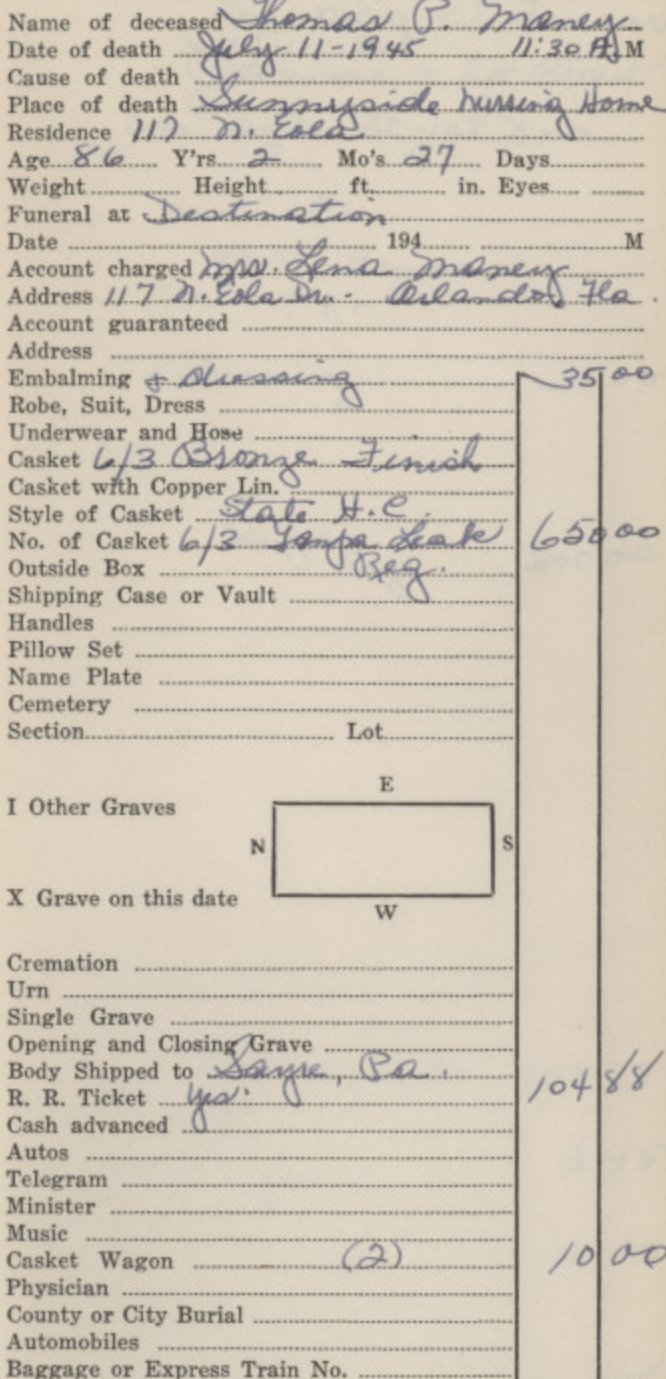 Name of deceased Thomas P. Maney
Date of death July 11-1945 11:30 A.M
Cause of death
Place of death Sunnyside Nursing Home
Residence 117 N. Eola
Age 86 Y'rs. 2 Mo's. 27 Days
Weight Height ft. in. Eyes
Funeral at Destination
Date 194 M
Account charged Mrs. Lena Maney
Address 117 N. Eola Dr. - Orlando, Fla.
Account guaranteed
Address
Embalming & dressing 35 00
Robe, Suit, Dress
Underwear and Hose
Casket 6/3 Bronze Finish
Casket with Copper Lin.
Style of Casket State H.C.
No. of Casket 6/3 650 00
Outside Box Reg.
Shipping Case or Vault
Handles
Pillow Set
Name Plate
Cemetery
Section Lot
E
I Other Graves
N S
X Grave on this date
W
Cremation
Urn
Single Grave
Opening and Closing Grave
Body Shipped to Sayre, Pa.
R. R. Ticket yes. 104 88
Cash advanced
Autos
Telegram
Minister
Music
Casket Wagon (2) 10 00
Physician
County or City Burial
Automobiles
Baggage or Express Train No.